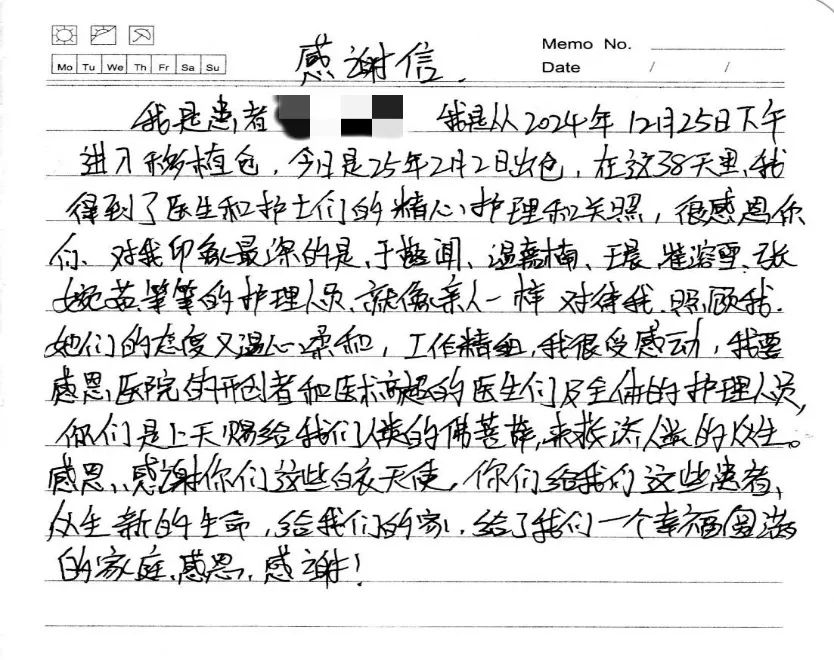 Mo Tu We Th Fr Sa Su
Memo No.
Date / /
感谢信.
我是患者 我是从2024年12月25日下午
进入移植仓，今日是25年2月2日出仓，在这38天里、我
得到了医生和护士们的精心护理和关照，很感恩你
们、对我印象最深的是、于 闻、温嘉楠、王晨、崔溶雪、张
婉英等等的护理人员、就像亲人一样 对待我、照顾我.
她们的态度又温心柔和，工作精细，我很受感动，我要
感恩医院的开创者和医术高超的医生们及全体的护理人员,
你们是上天赐给我们人类的佛菩萨,来救济人类的众生。
感恩、感谢你们这些白衣天使，你们给我们这些患者、
众生新的生命，给我们的家、给了我们一个幸福圆满
的家庭、感恩，感谢！